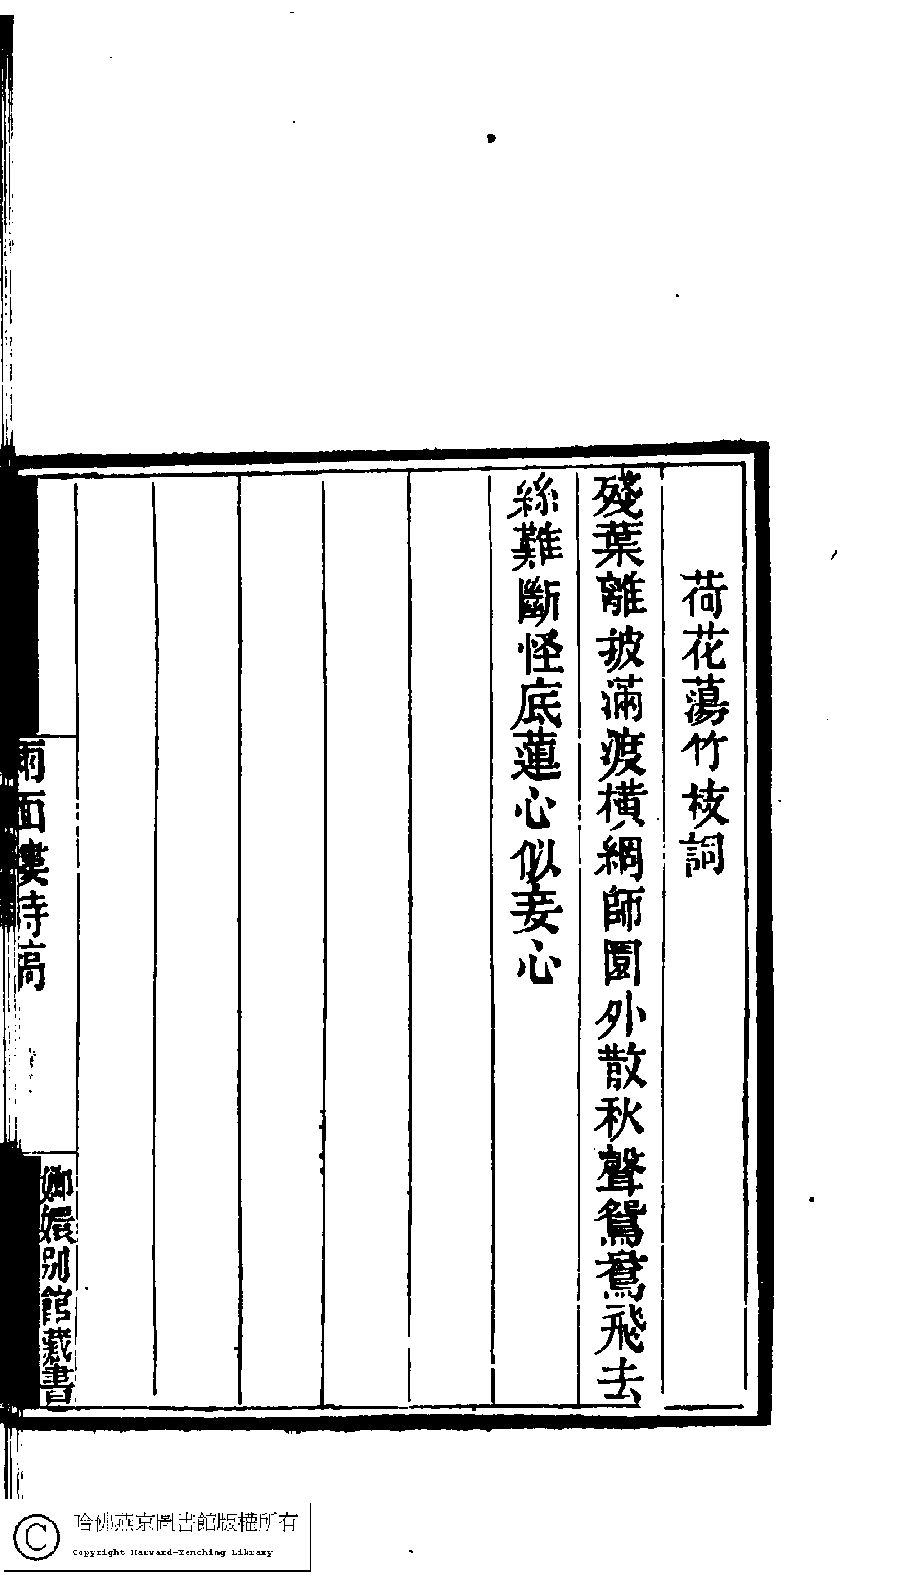 荷花蕩竹枝詞
殘葉離披滿渡橫網師園外散秋聲鴛鴦飛去
絲難斷怪底蓮心似妾心
兩面樓詩稿
嫏嬛別館藏書
哈佛燕京圖書館版權所有
Copyright Harvard-Yenching Library